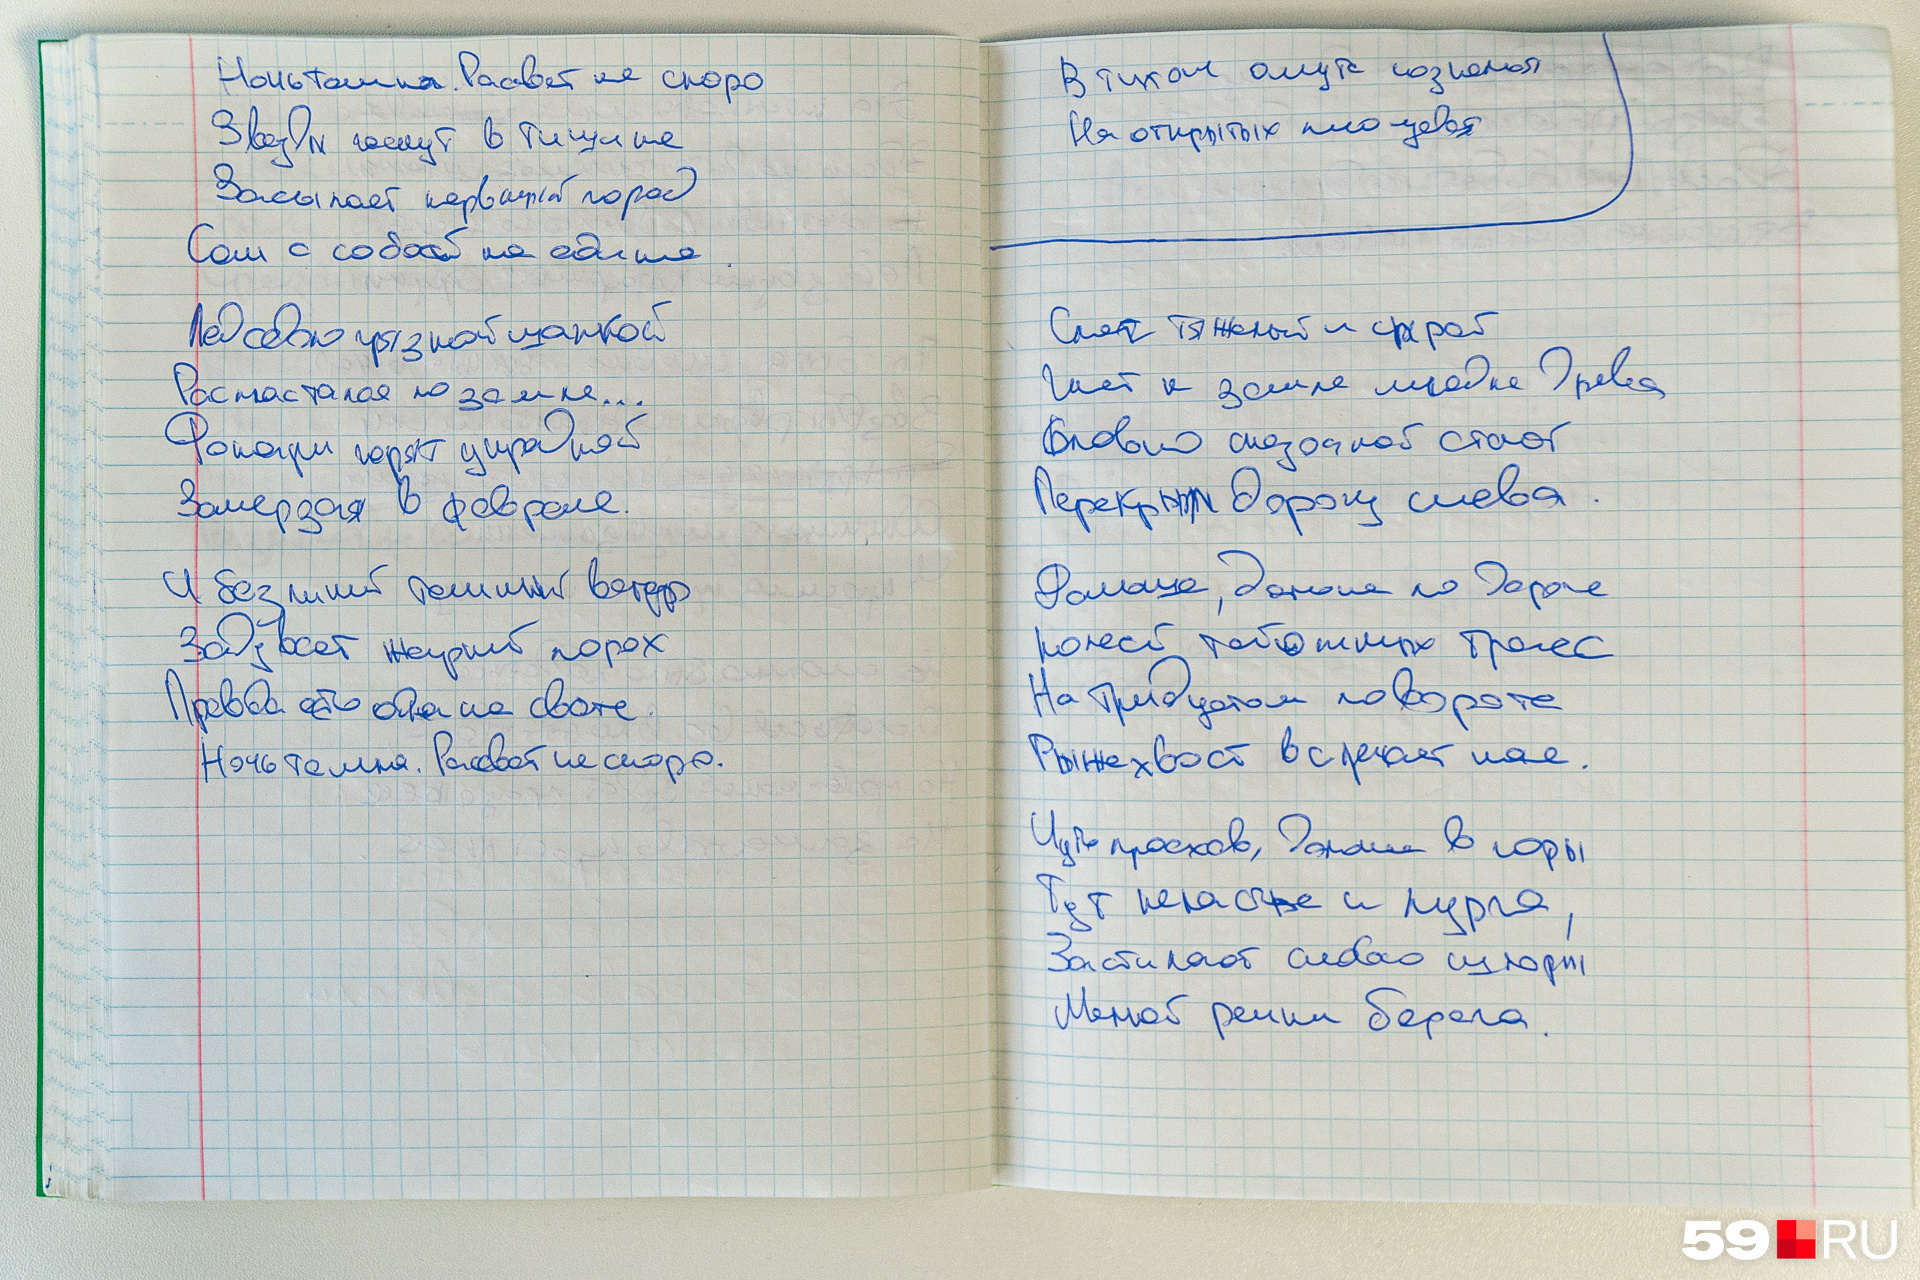 Ночь темна. Рассвет не скоро
Звезды гаснут в тишине
Засыпает нервный город
Сам с собой на едине.
Лед соваю грязной шапкой
Распластался по земле...
Фонари горят украдкой
Замерзая в феврале.
И безликий темный ветер
Задувает жгучий порох
Правда есть одна на свете.
Ночь темна. Рассвет не скоро.
В тихом омуте
На открытых площадях
Снег тяжелый и сырой
Гнет к земле младые древа
Словно сказочной стеной
Перекрыл дорогу слева.
Дальше, дальше по дороге
Колеёй таёжных трасс
На тридцатом повороте
Рыжехвост встречает нас.
Чуть проехав, дальше в горы
Тут ненастье и пурга,
Застилают словно шторы
Малой речки берега.
59 RU